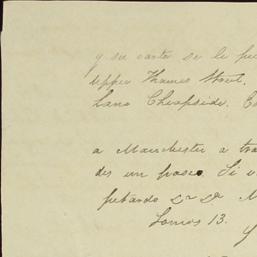 y su carta se le
Upper Thames Street.
Lane Cheapside.
a Manchester a
des un paseo. Si
Lunes 13.
y